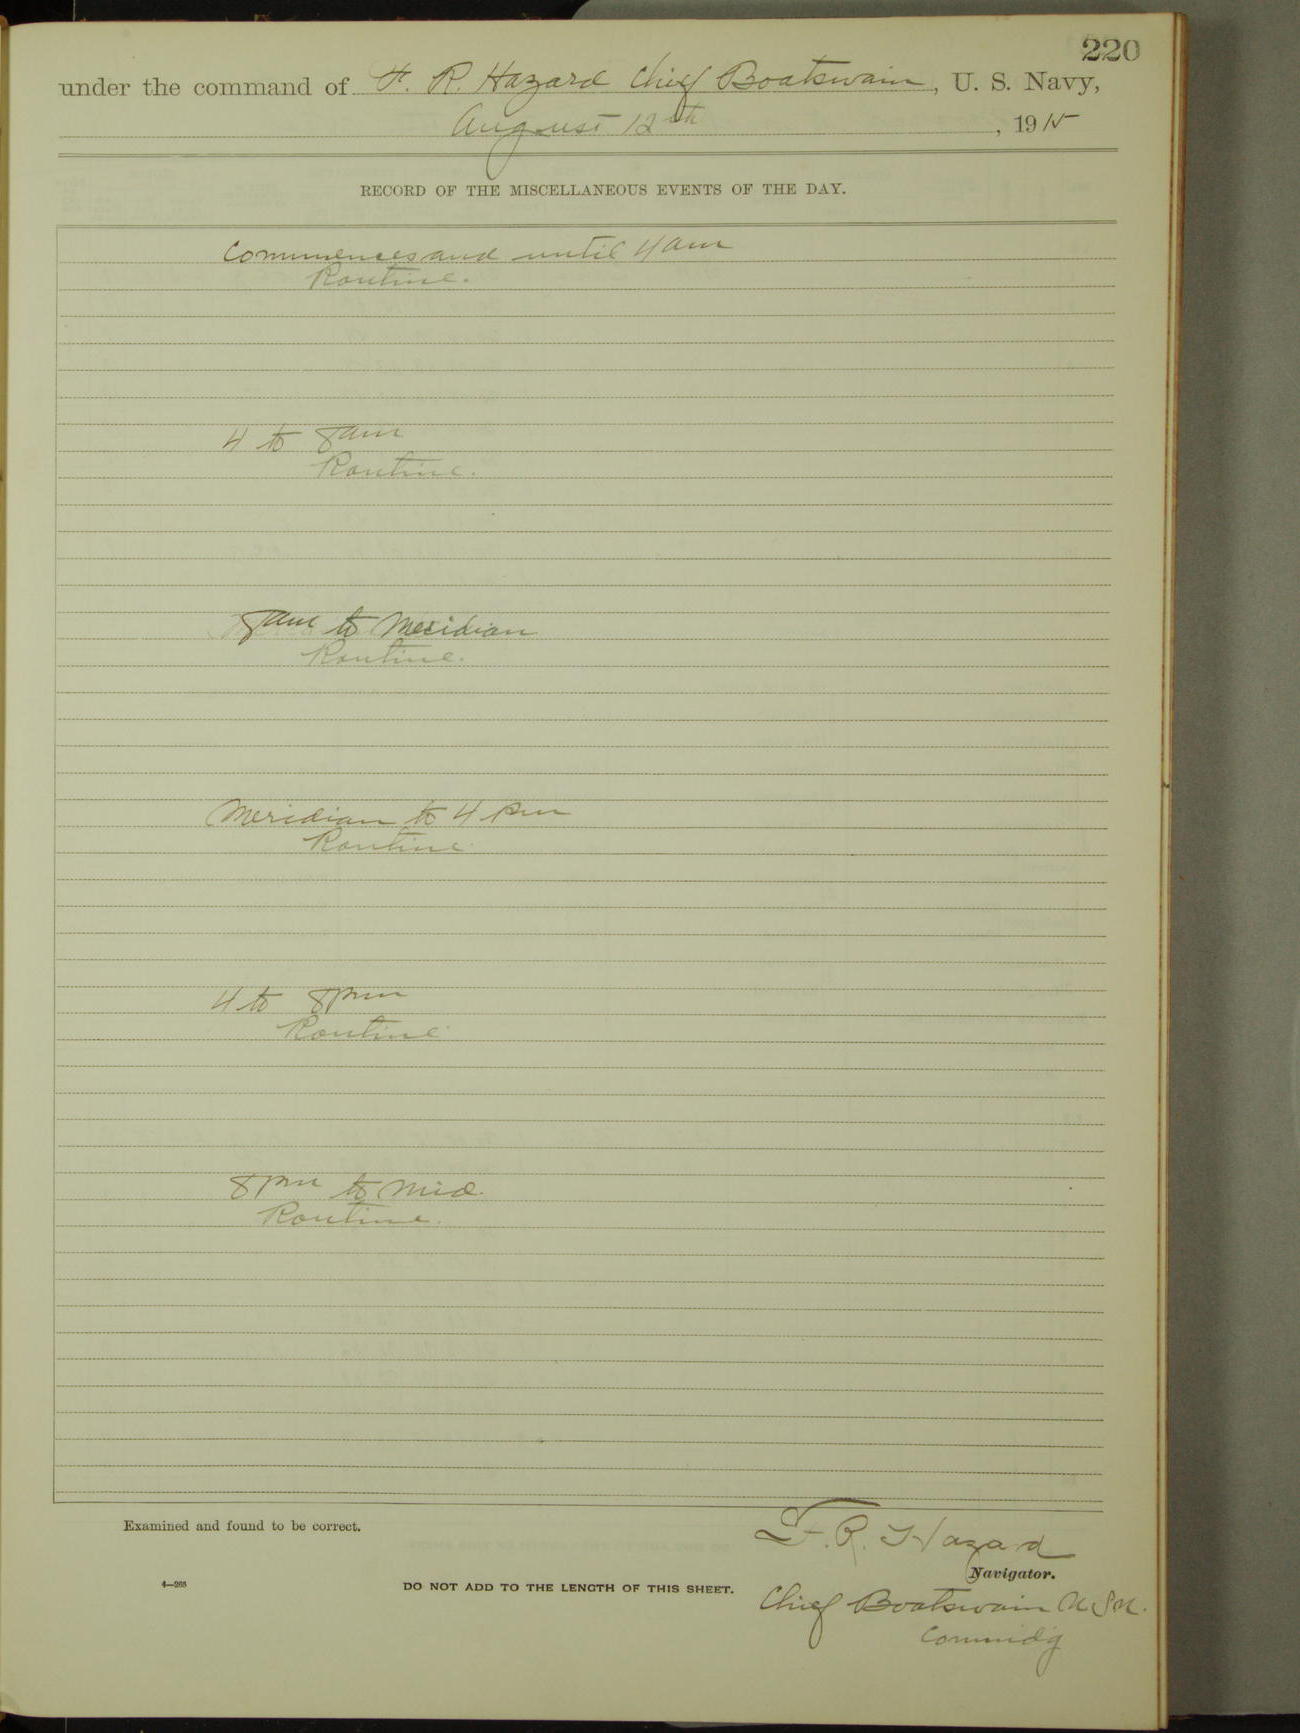 220
under the command of F. R. Hazard Chief Boatswain, U. S. Navy,
August 12th, 1915
RECORD OF THE MISCELLANEOUS EVENTS OF THE DAY.
Commences and until 4 am
Routine.
4 to 8 am
Routine.
8 am to Meridian
Routine.
Meridian to 4 pm
Routine
4 to 8 pm
Routine
8 pm to Mid.
Routine.
Examined and found to be correct.
F. R. Hazard
Navigator.
4—265
DO NOT ADD TO THE LENGTH OF THIS SHEET.
Chief Boatswain U.S.N.
Commdg